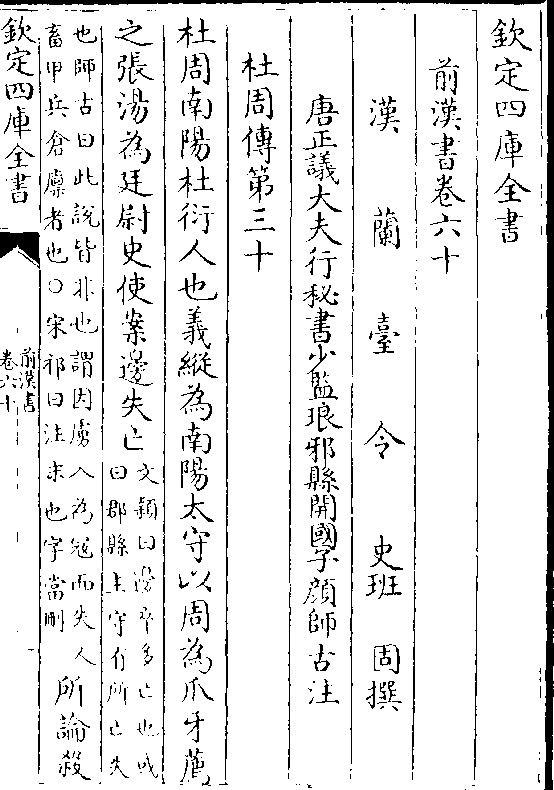 欽定四庫全書
前漢書卷六十
漢蘭臺令史班固撰
唐正議大夫行秘書少監琅邪縣開國子顔師古注
杜周傳第三十
杜周南陽杜衍人也義縱為南陽太守以周為爪牙薦
之張湯為廷尉史使案邊失亡
文穎曰邊卒多亡也或
曰郡縣主守有所亡失
也師古曰此說皆非也謂因虜入為冦而失人
畜甲兵倉廩者也○宋祁曰注末也字當刪
所論殺
欽定四庫全書
前漢書
卷六十